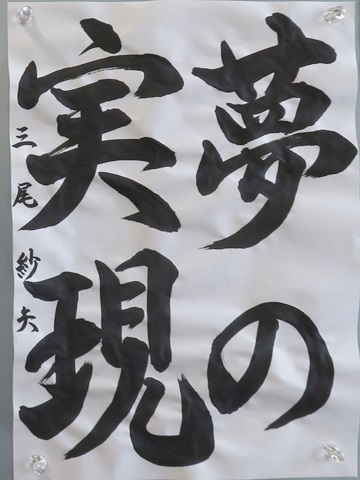 夢の
実現
三尾紗矢